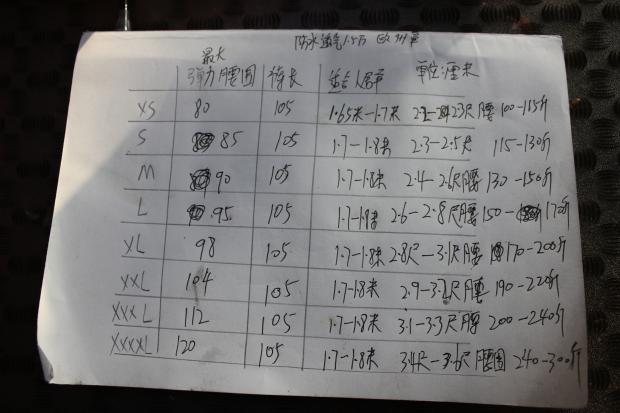 防水透气1.5万 欧洲单
最大
弹力腰围 裤长 适合人群 单位:厘米
XS 80 105 1.65米-1.7米 2.3尺腰 100-115斤
S 85 105 1.7-1.8米 2.3-2.5尺 115-130斤
M 90 105 1.7-1.8米 2.4-2.6尺腰 130-150斤
L 95 105 1.7-1.8米 2.6-2.8尺腰 150-170斤
XL 98 105 1.7-1.8米 2.8尺-3.1尺腰 170-200斤
XXL 104 105 1.7-1.8米 2.9-3.2尺腰 190-220斤
XXXL 112 105 1.7-1.8米 3.1-3.3尺腰 200-240斤
XXXXL 120 105 1.7-1.8米 3.4尺-3.6尺腰围 240-300斤